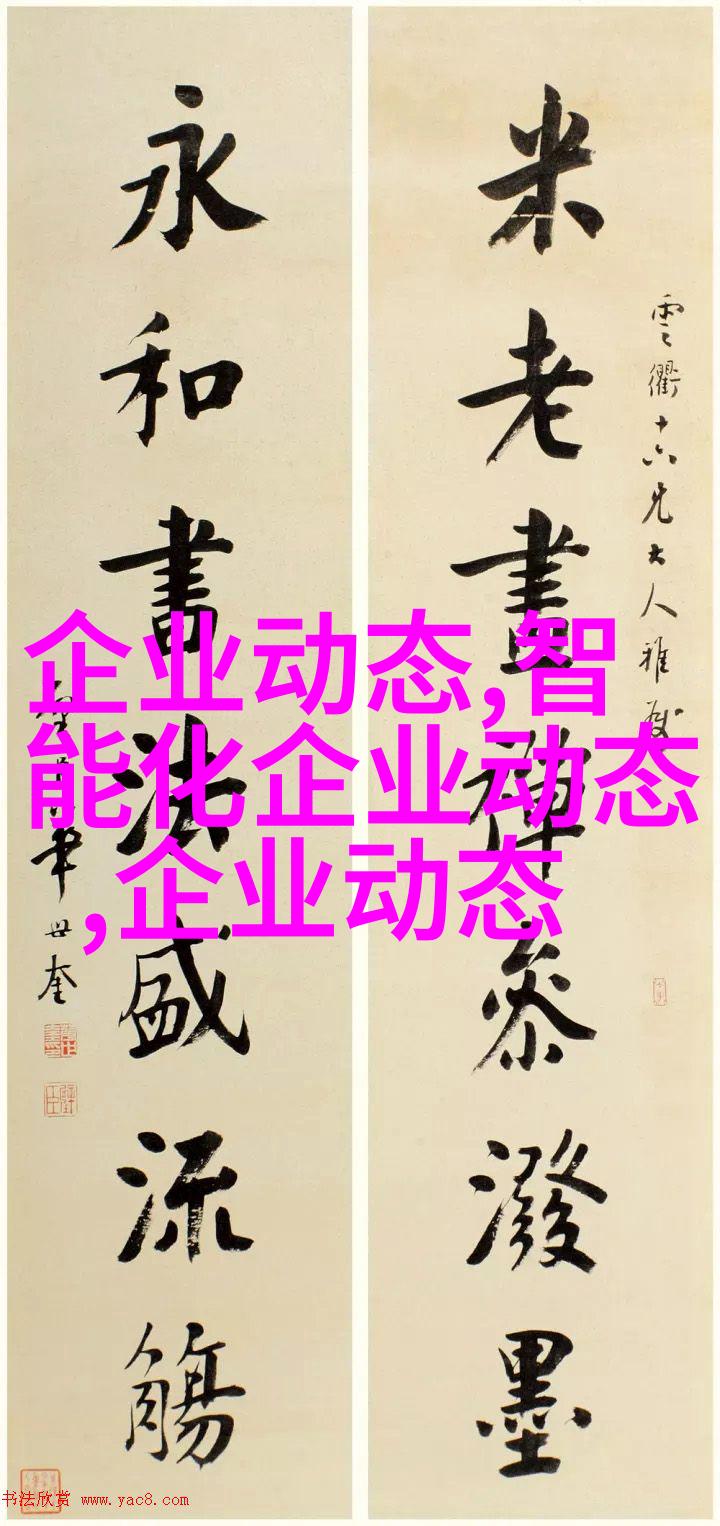 米老畫禪參潑墨
雲衢十六兄大人雅屬
永和書法盛流觴
華世奎
企业动态,智
能化企业动态
,企业动态
书法欣赏 www.yac8.com